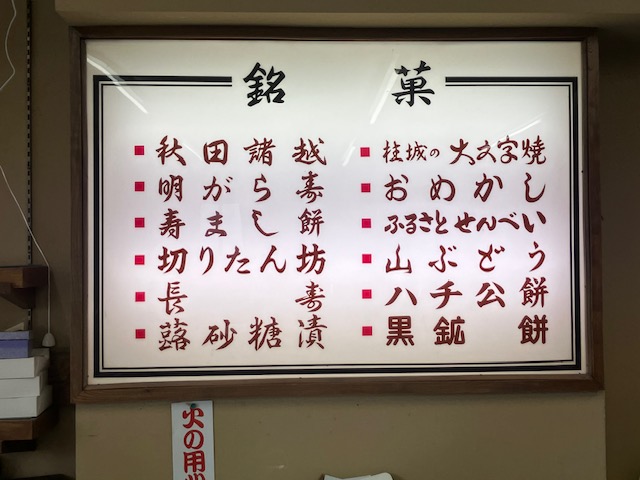 銘菓
秋田諸越
明がらす
寿まし餅
切りたんぽ
長寿
蕗砂糖漬
桂城の大文字焼
おめかし
ふるさとせんべい
山ぶどう
ハチ公餅
黒鉱餅
火の用